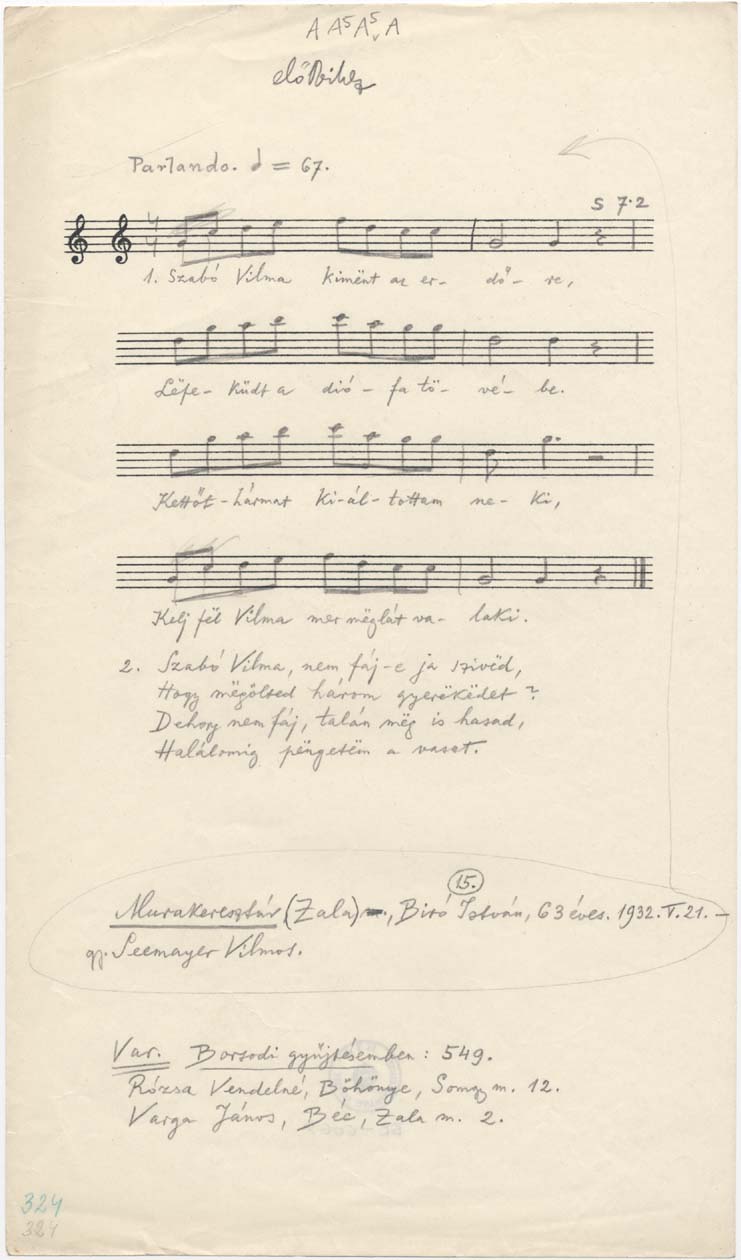 A A⁵ A⁵ᵥ A
Parlando. = 67.
5 7·2
4
4
1. Szabó Vilma kimënt az er- dő- re,
Lëfe- küdt a dió- fa tö- vé- be.
Kettőt-hármat ki-ál-tottam ne- ki,
Kelj fël Vilma mer mëglát va- laki.
2. Szabó Vilma, nem fáj-e ja szivëd,
Hogy mëgölted három gyerëkëdet?
Dehogy nem fáj, talán mëg is hasad,
Halálomig pëngetëm a vasat.
15.
Murakeresztúr, (Zala), Biró István, 63 éves. 1932. V. 21. –
gy. Seemayer Vilmos.
Var. Borsodi gyűjtésemben: 549.
Rózsa Vendelné, Böhönye, Somogy m. 12.
Varga János, Béc, Zala m. 2.
324
324